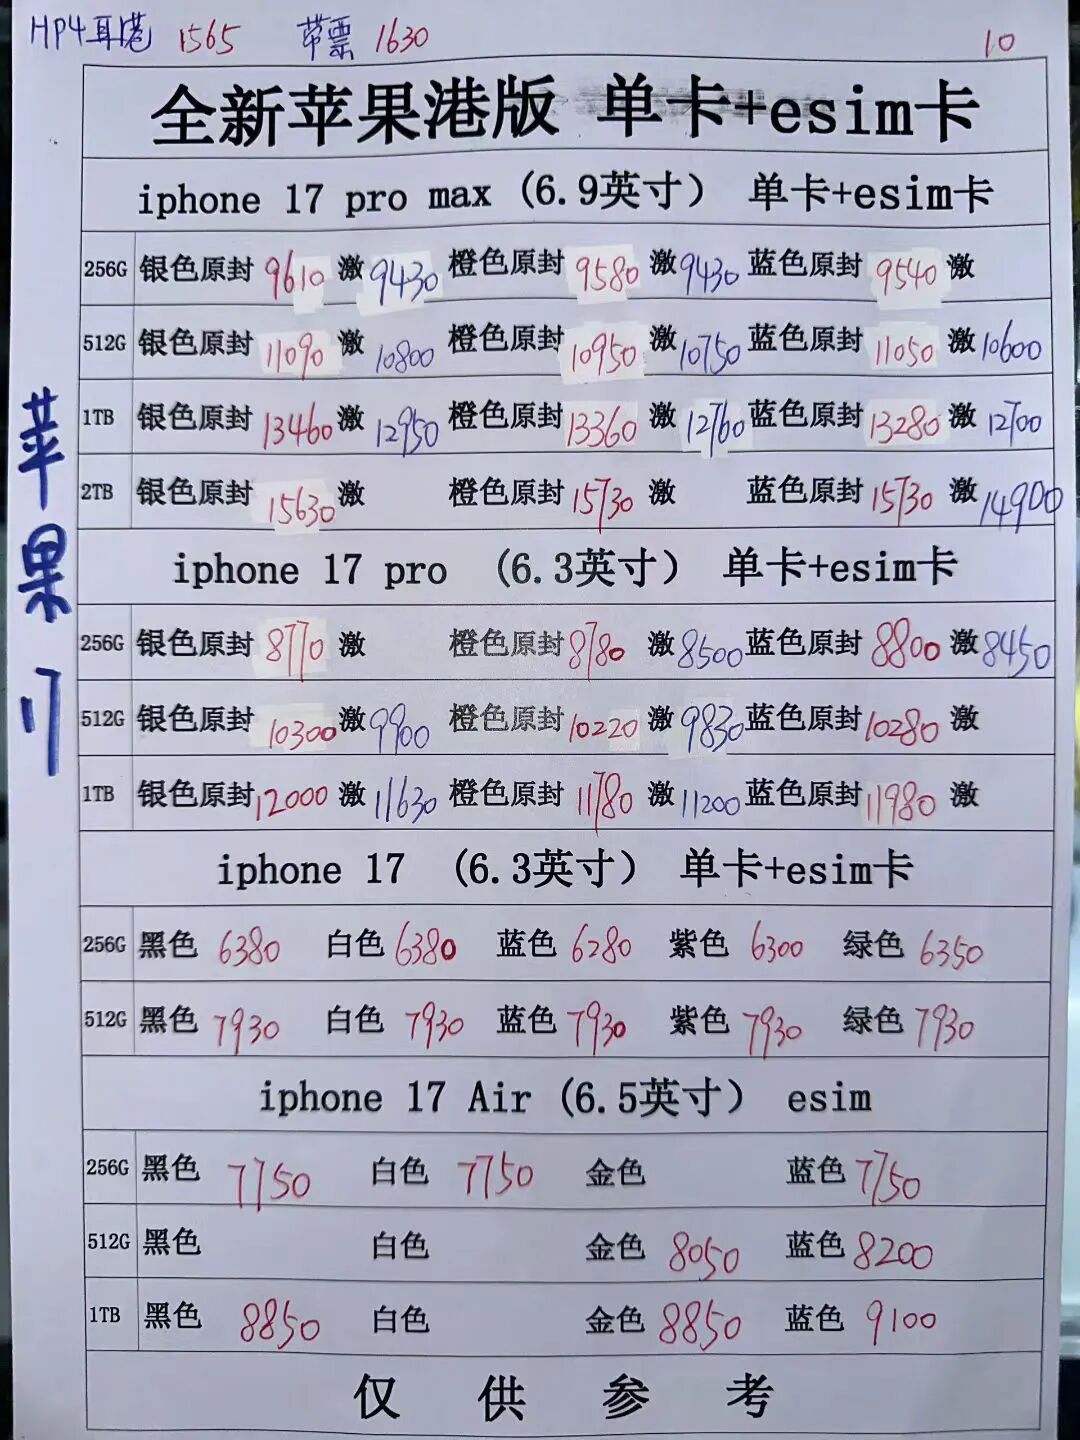 HP4耳港 1565 带票 1630 10
全新苹果港版 单卡+esim卡
iphone 17 pro max (6.9英寸) 单卡+esim卡
256G 银色原封 9610 激 9430 橙色原封 9580 激 9430 蓝色原封 9540 激
512G 银色原封 11090 激 10800 橙色原封 10950 激 10750 蓝色原封 11050 激 10600
1TB 银色原封 13460 激 12950 橙色原封 13360 激 12760 蓝色原封 13280 激 12700
2TB 银色原封 15630 激 橙色原封 15730 激 蓝色原封 15730 激 14900
苹果 17
iphone 17 pro (6.3英寸) 单卡+esim卡
256G 银色原封 8770 激 橙色原封 8780 激 8500 蓝色原封 8800 激 8450
512G 银色原封 10300 激 9900 橙色原封 10220 激 9830 蓝色原封 10280 激
1TB 银色原封 12000 激 11630 橙色原封 11780 激 11200 蓝色原封 11980 激
iphone 17 (6.3英寸) 单卡+esim卡
256G 黑色 6380 白色 6380 蓝色 6280 紫色 6300 绿色 6350
512G 黑色 7930 白色 7930 蓝色 7930 紫色 7930 绿色 7930
iphone 17 Air (6.5英寸) esim
256G 黑色 7750 白色 7750 金色 蓝色 7750
512G 黑色 白色 金色 8050 蓝色 8200
1TB 黑色 8850 白色 金色 8850 蓝色 9100
仅供参考